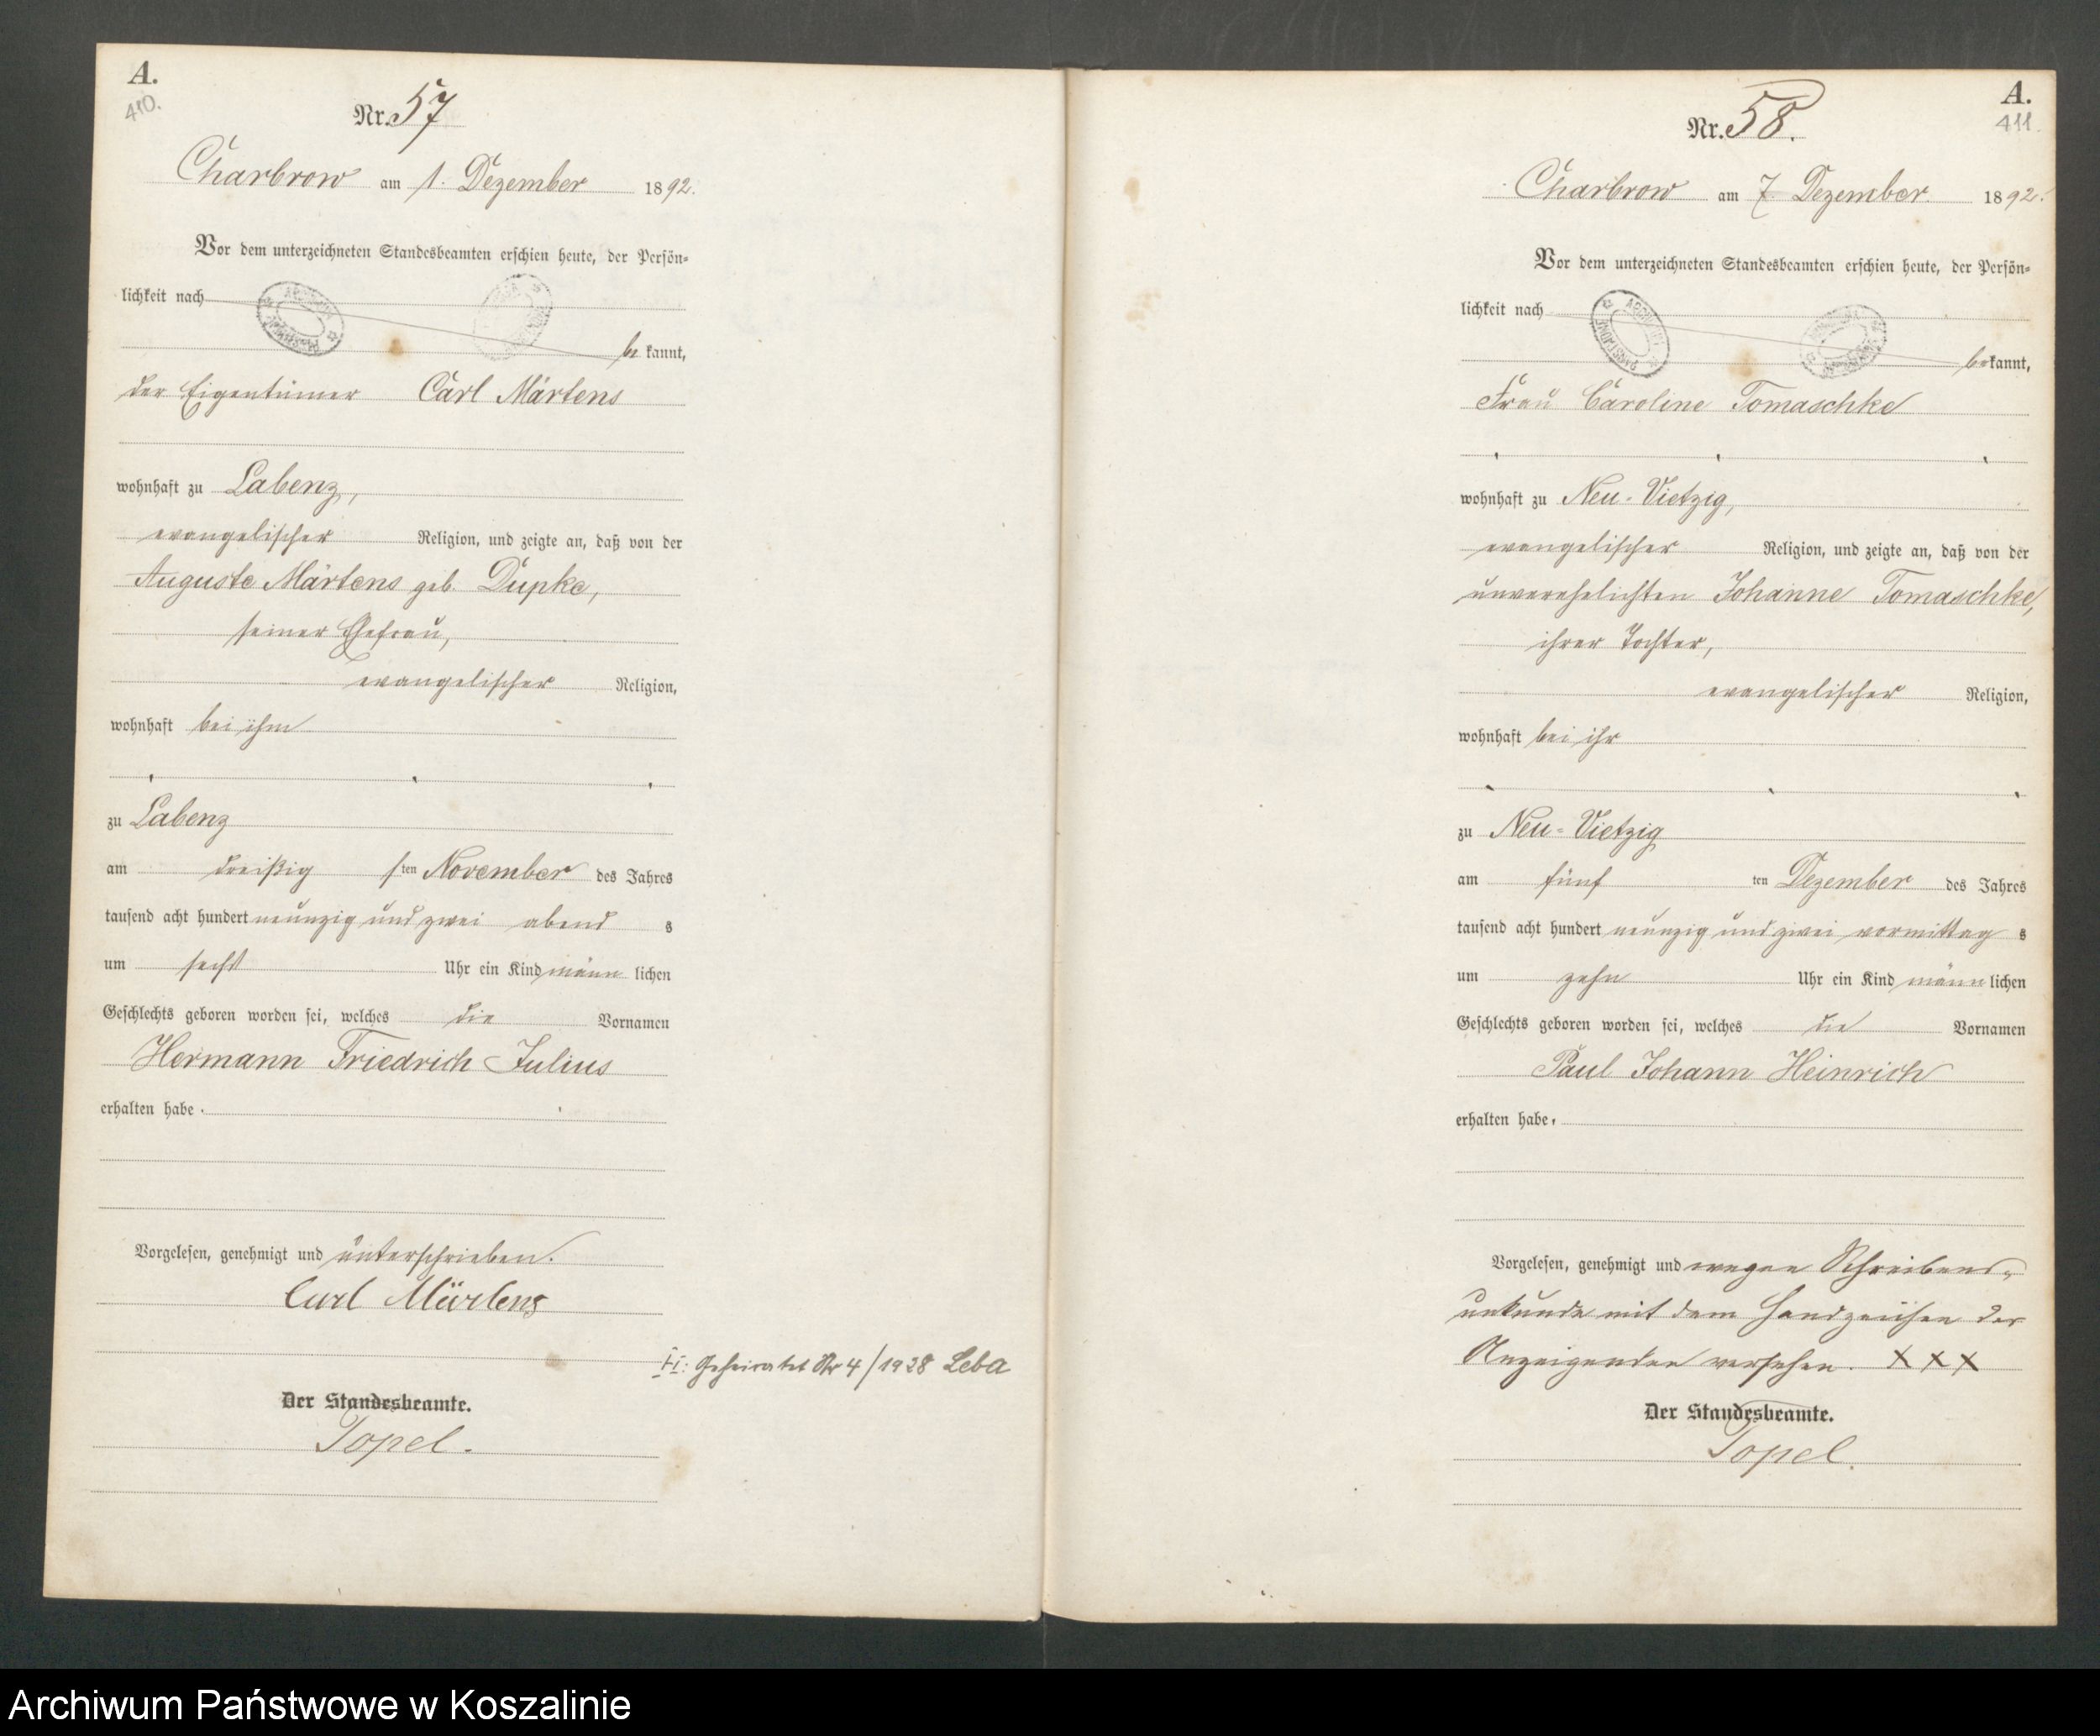 A.
410.
Nr. 57
Charbrow am 1. Dezember 1892.
Vor dem unterzeichneten Standesbeamten erschien heute, der Persön-
lichkeit nach
be kannt,
der Eigentümer Carl Märtens
wohnhaft zu Labenz,
evangelischer Religion, und zeigte an, daß von der
Auguste Märtens geb. Dupke,
seiner Ehefrau,
evangelischer Religion,
wohnhaft bei ihm
zu Labenz
am dreißig sten November des Jahres
tausend acht hundert neunzig und zwei abend s
um sechs Uhr ein Kind männ lichen
Geschlechts geboren worden sei, welches die Vornamen
Hermann Friedrich Julius
erhalten habe.
Vorgelesen, genehmigt und unterschrieben.
Carl Märtens
II: Geheiratet Nr 4/1928 Leba
Der Standesbeamte.
Topel.
A.
411.
Nr. 58.
Charbrow am 7. Dezember 1892.
Vor dem unterzeichneten Standesbeamten erschien heute, der Persön-
lichkeit nach
be kannt,
Frau Caroline Tomaschke
wohnhaft zu Neu-Vietzig,
evangelischer Religion, und zeigte an, daß von der
unverehelichten Johanne Tomaschke,
ihrer Tochter,
evangelischer Religion,
wohnhaft bei ihr
zu Neu-Vietzig
am fünf ten Dezember des Jahres
tausend acht hundert neunzig und zwei vormittag s
um zehn Uhr ein Kind männ lichen
Geschlechts geboren worden sei, welches die Vornamen
Paul Johann Heinrich
erhalten habe.
Vorgelesen, genehmigt und wegen Schreibens-
unkunde mit dem Handzeichen der
Anzeigenden versehen. X X X
Der Standesbeamte.
Topel.
Archiwum Państwowe w Koszalinie